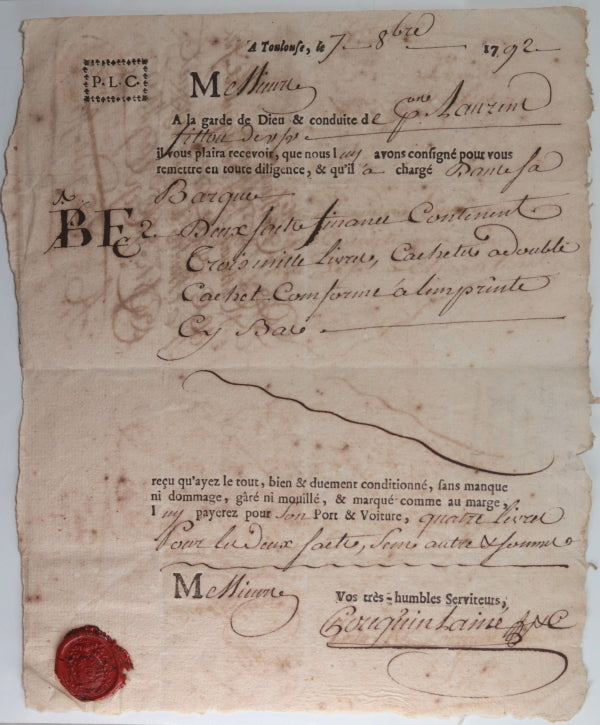 A Toulouse, le 7 8bre 1792
P. L. C.
Messieurs
A la garde de Dieu & conduite de Pne. Laurent
il vous plaira recevoir, que nous luy avons consigné pour vous
remettre en toute diligence, & qu'il a chargé Dans sa
Barque
BF 2 Deux sacts finance Contenent
Trois mille livres, Cachetés a double
Cachet Conforme à limprinte
Cy Bas
reçu qu'ayez le tout, bien & duement conditionné, sans manque
ni dommage, gâré ni mouillé, & marqué comme au marge,
luy payerez pour son Port & Voiture, quatre livres
Pour les deux sacts, sans autre
Messieurs
Vos très-humbles Serviteurs,